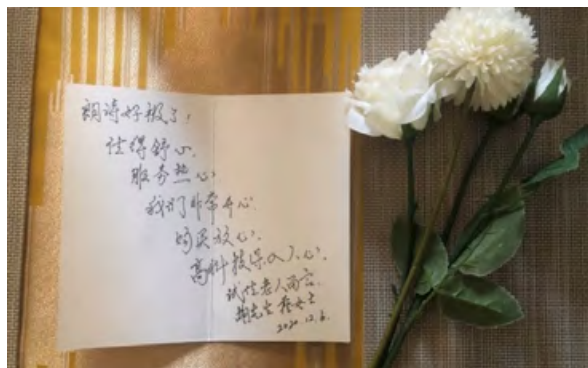 朗诗好极了！
住得舒心.
服务热心.
我们非常开心.
购买放心.
高科技深入人心.
试住老人而言.
先生 女士
2020.12.6.